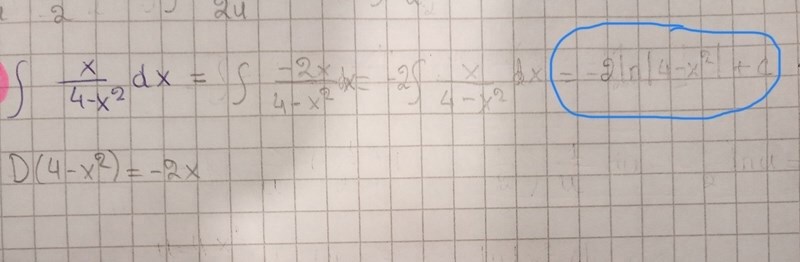 2 24
∫ x/(4-x²) dx = ∫ -2x/(4-x²) dx = -2∫ x/(4-x²) dx = -2 ln|4-x²| + c
D(4-x²) = -2x